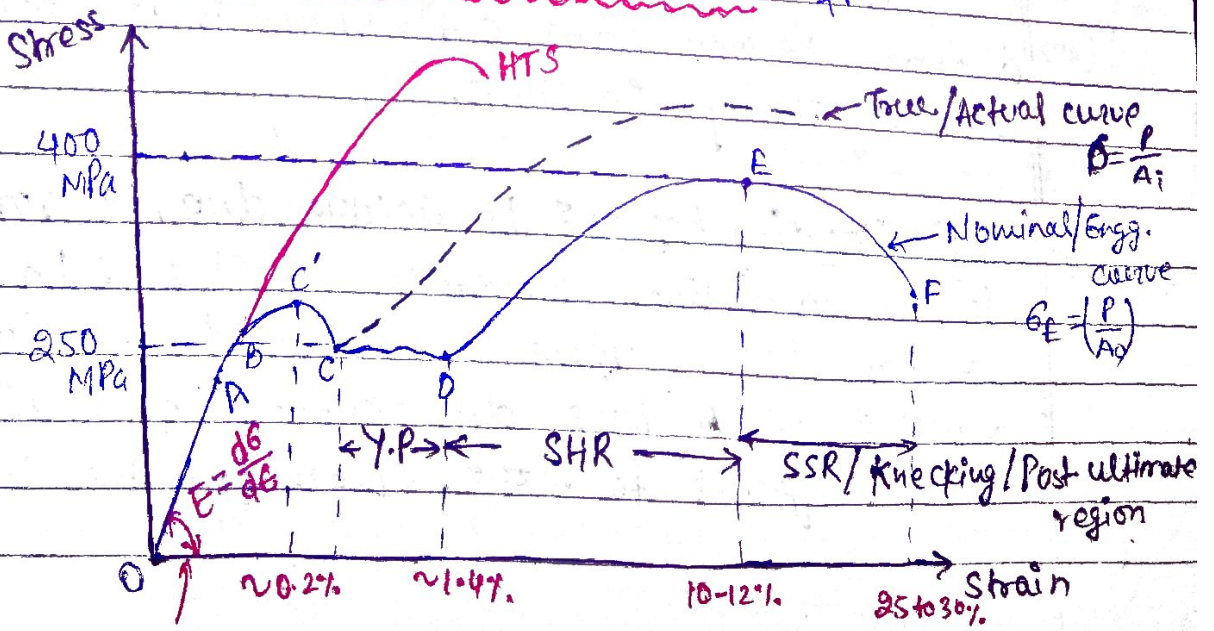 Stress
HTS
True/Actual curve
σ = P/Ai
400
MPa
E
Nominal/Engg.
curve
σE = (P/A0)
C'
F
250
MPa
B
C
D
A
E = dσ/dε
Y.P
SHR
SSR/Knecking/Post ultimate
region
O
~0.2%
~1.4%.
10-12%.
25 to 30%.
Strain